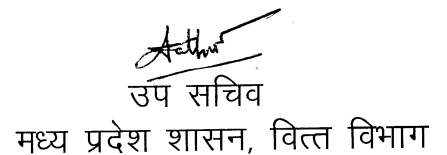 उप सचिव
मध्य प्रदेश शासन, वित्त विभाग